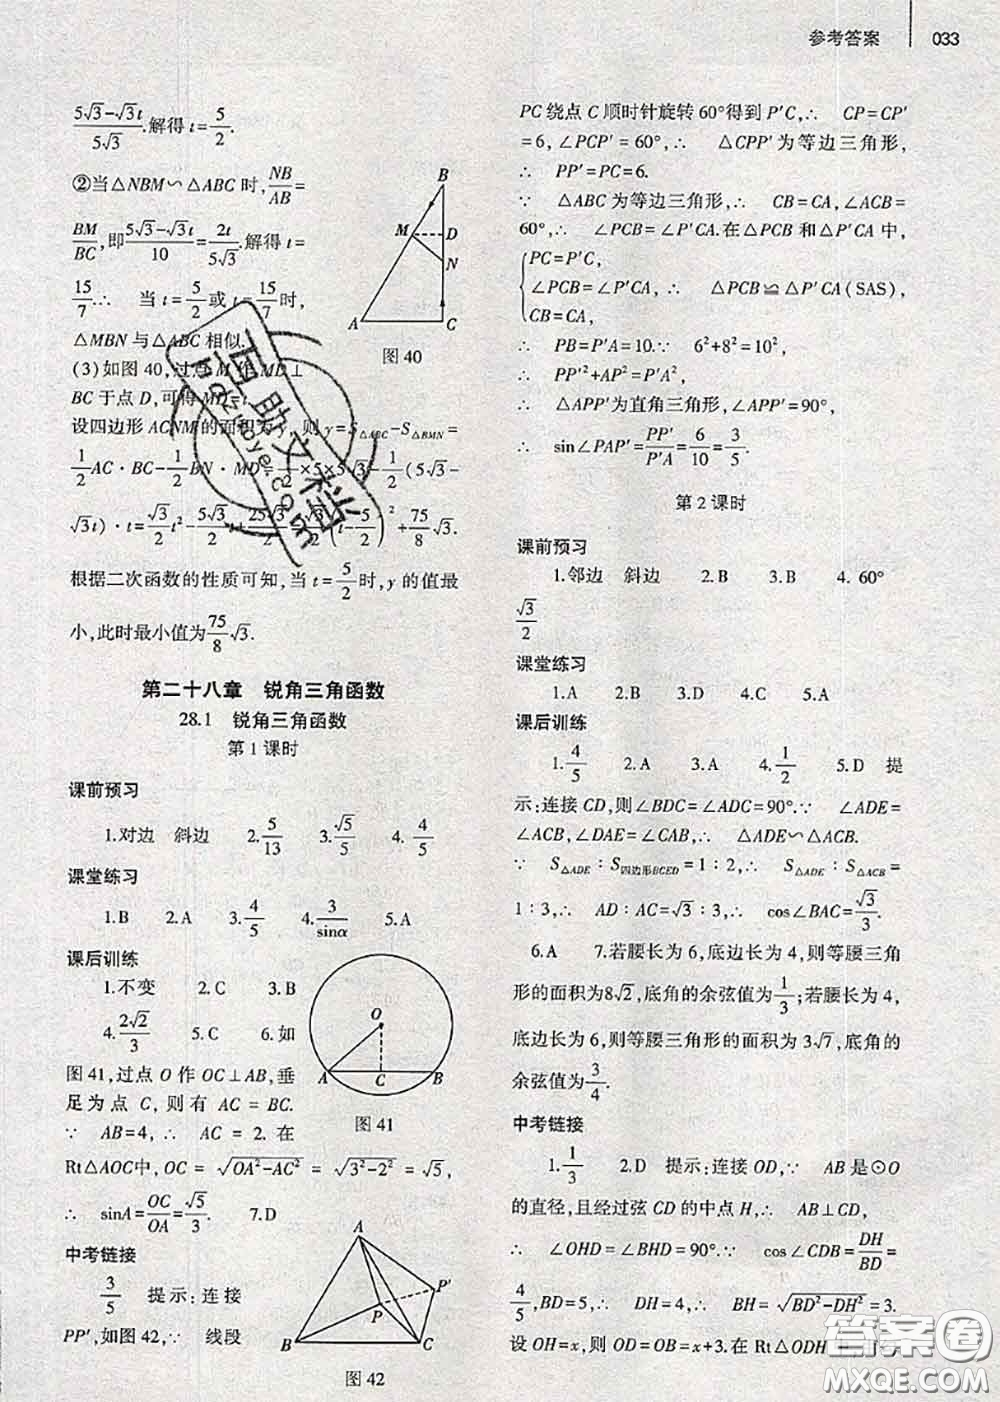 参考答案 033
(5√3-√3t)/(5√3).解得 t=5/2.
②当△NBM∽△ABC 时,NB/AB=
BM/BC,即(5√3-√3t)/10=2t/(5√3).解得 t=
15/7.∴ 当 t=5/2或 t=15/7时,
△MBN 与△ABC 相似.
(3)如图 40,过点 M 作 MD⊥
BC 于点 D,可得 MD=t.
设四边形 ACNM 的面积为 y,则 y=S△ABC-S△BMN=
1/2 AC·BC-1/2 BN·MD=1/2×5×5√3-1/2(5√3-
√3t)·t=√3/2 t²-5√3/2 t+25√3/2=√3/2(t-5/2)²+75/8 √3.
根据二次函数的性质可知,当 t=5/2时,y 的值最
小,此时最小值为75/8 √3.
B
M
D
N
A
C
图 40
第二十八章 锐角三角函数
28.1 锐角三角函数
第 1 课时
课前预习
1.对边 斜边 2.5/13 3.√5/5 4.4/5
课堂练习
1.B 2.A 3.4/5 4.3/sinα 5.A
课后训练
1.不变 2.C 3.B
4.2√2/3 5.C 6.如
图 41,过点 O 作 OC⊥AB,垂
足为点 C,则有 AC=BC.
∵ AB=4,∴ AC=2.在
Rt△AOC中,OC=√(OA²-AC²)=√(3²-2²)=√5,
∴ sinA=OC/OA=√5/3. 7.D
O
A
C
B
图 41
中考链接
3/5 提示:连接
PP′,如图 42,∵ 线段
A
P′
P
B
C
图 42
PC 绕点 C 顺时针旋转 60°得到 P′C,∴ CP=CP′
=6,∠PCP′=60°,∴ △CPP′为等边三角形,
∴ PP′=PC=6.
∵ △ABC 为等边三角形,∴ CB=CA,∠ACB=
60°,∴ ∠PCB=∠P′CA.在△PCB 和△P′CA 中,
PC=P′C,
∠PCB=∠P′CA, ∴ △PCB≌△P′CA(SAS),
CB=CA,
∴ PB=P′A=10.∵ 6²+8²=10²,
∴ PP′²+AP²=P′A²,
∴ △APP′为直角三角形,∠APP′=90°,
∴ sin∠PAP′=PP′/P′A=6/10=3/5.
第 2 课时
课前预习
1.邻边 斜边 2.B 3.B 4.60°
√3/2
课堂练习
1.A 2.B 3.D 4.C 5.A
课后训练
1.4/5 2.A 3.A 4.1/2 5.D 提
示:连接 CD,则∠BDC=∠ADC=90°.∵ ∠ADE=
∠ACB,∠DAE=∠CAB,∴ △ADE∽△ACB.
∵ S△ADE∶S四边形BCED=1∶2,∴ S△ADE∶S△ACB=
1∶3,∴ AD∶AC=√3∶3,∴ cos∠BAC=√3/3.
6.A 7.若腰长为 6,底边长为 4,则等腰三角
形的面积为8√2,底角的余弦值为1/3;若腰长为 4,
底边长为 6,则等腰三角形的面积为 3√7,底角的
余弦值为3/4.
中考链接
1.1/3 2.D 提示:连接 OD,∵ AB 是⊙O
的直径,且经过弦 CD 的中点 H,∴ AB⊥CD,
∴ ∠OHD=∠BHD=90°.∵ cos∠CDB=DH/BD=
4/5,BD=5,∴ DH=4,∴ BH=√(BD²-DH²)=3.
设 OH=x,则 OD=OB=x+3.在 Rt△ODH 中,由勾
百助文档
bdzuoye.com
答案圈
MXQE.COM